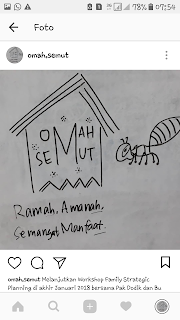 78% 07:54
Foto
omah.semut
OMAH
SEMUT
Ramah, Amanah,
Semangat Manfaat
omah.semut Melanjutkan Workshop Family Strategic
Planning di akhir Januari 2018 bersama Pak Dodik dan Bu